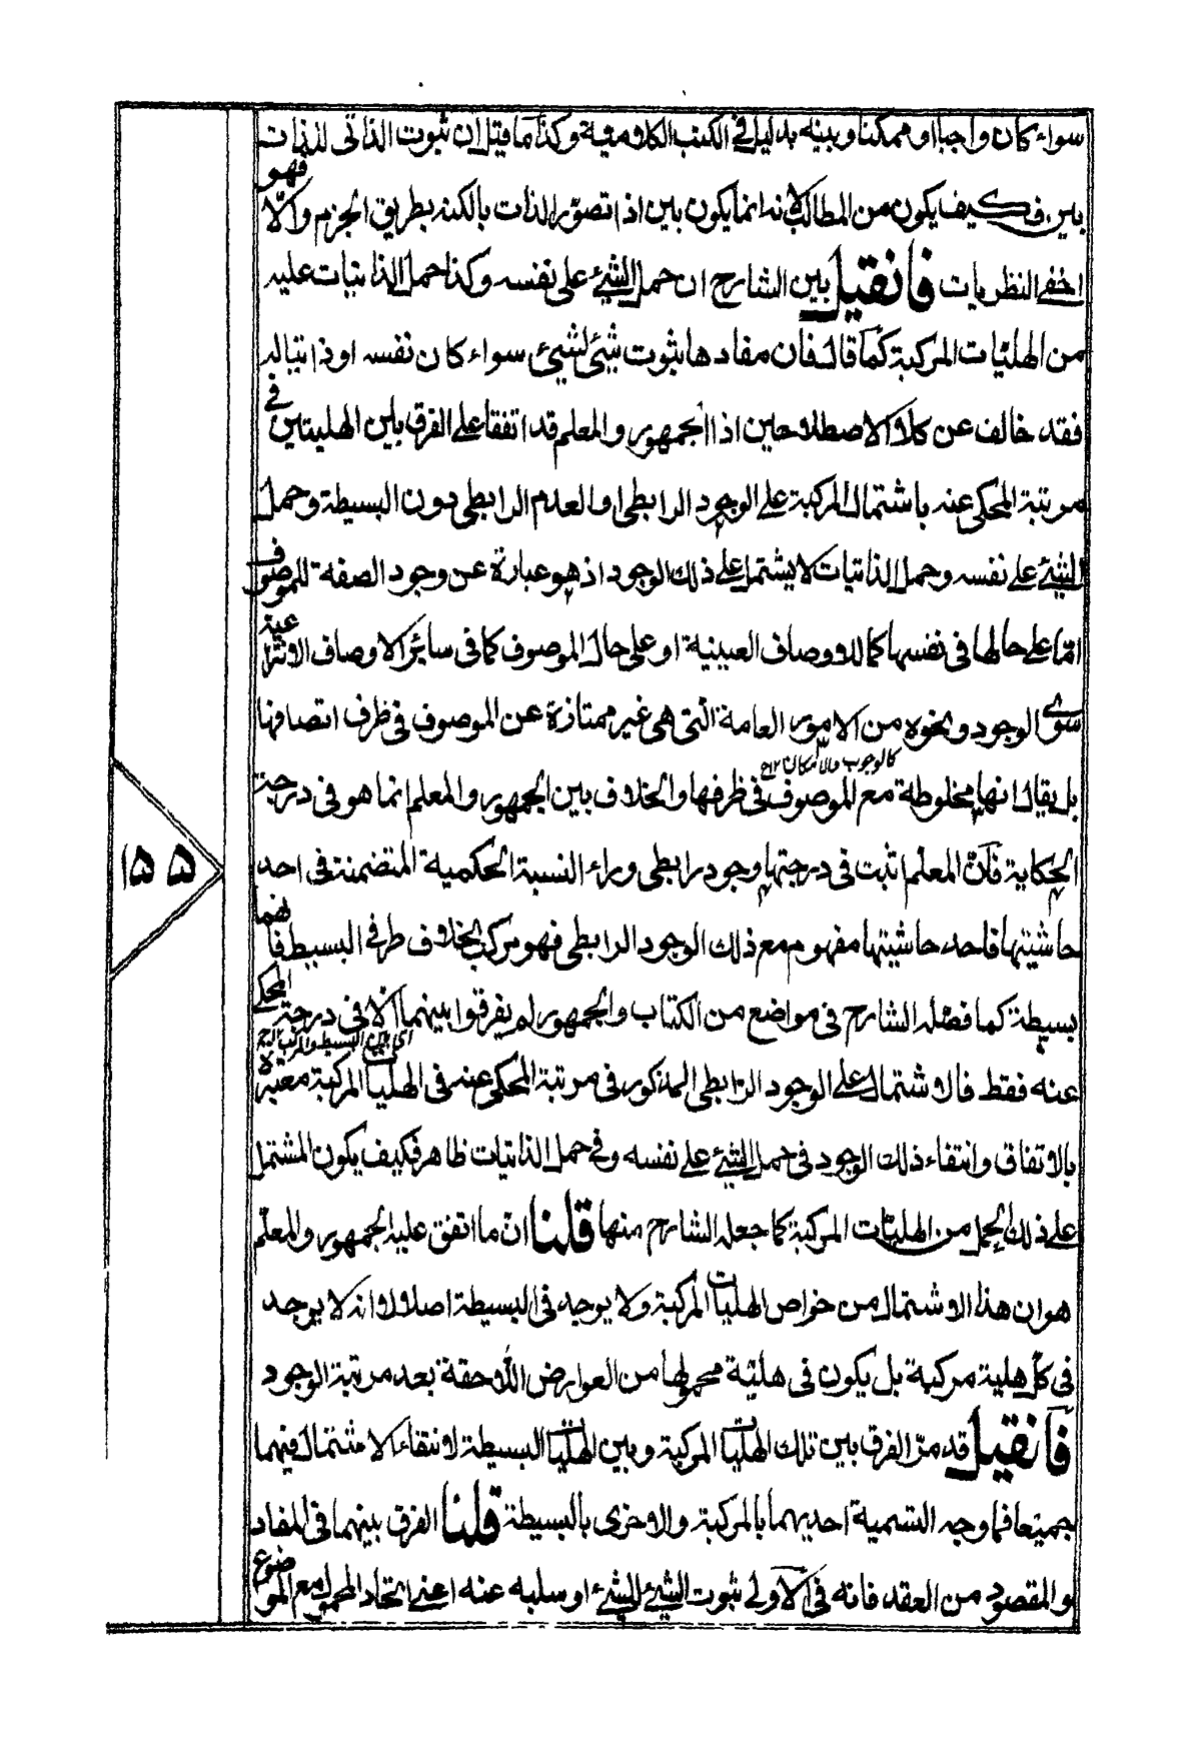 سواء كان واجبا او ممكنا وبينه بدليل في الكتب الكلامية وكذا ما قيل ان ثبوت الذاتى للذات
بين فكيف يكون من المطالب لانه انما يكون بين اذا تصور الذات بالكنه بطريق الجزم والا فهو
اخفى النظريات فان قيل بين الشارح ان حمل الشيئ على نفسه وكذا حمل الذاتيات عليه
من الهليات المركبة كما قال فان مفادها ثبوت شيئ لشيئ سواء كان نفسه او ذاتياله
فقد خالف عن كلا الاصطلاحين اذا الجمهور والمعلم قد اتفقا على الفرق بين الهليتين في
مرتبة المحكى عنه باشتمال المركبة على الوجود الرابطى او العدم الرابطى دون البسيطة وحمل
الشيئ على نفسه وحمل الذاتيات لا يشتمل على ذلك الوجود اذ هو عبارة عن وجود الصفة للموصوف
اما على حالها فى نفسها كما للاوصاف العينية او على حال الموصوف كما فى سائر الاوصاف الانتزاعية
سوى الوجود ونحوه من الامور العامة التى هى غير ممتازة عن الموصوف فى ظرف اتصافها
كالوجوب والامكان ١٢
بل يقال انها مخلوطة مع الموصوف فى ظرفها والخلاف بين الجمهور والمعلم انما هو فى درجة
الحكاية فان المعلم اثبت فى درجتها وجود رابطى وراء النسبة الحكمية المتضمنة فى احد
حاشيتها فاحد حاشيتها مفهوم مع ذلك الوجود الرابطى فهو مركب بخلاف طرفى البسيط فانهما
بسيطة كما فصله الشارح فى مواضع من الكتاب والجمهور لم يفرقوا بينهما الا فى درجة المحكى
اى بين البسيط والمركب
عنه فقط فالاشتمال على الوجود الرابطى المذكور فى مرتبة المحكى عنه فى الهليات المركبة معتبرة
بالاتفاق وانتفاء ذلك الوجود فى حمل الشيئ على نفسه وفى حمل الذاتيات ظاهر فكيف يكون المشتمل
على ذلك الحمل من الهليات المركبة كما جعله الشارح منها قلنا ان ما اتفق عليه الجمهور والمعلم
هو ان هذا الاشتمال من خواص الهليات المركبة ولا يوجد فى البسيطة اصلا لا انه لا يوجد
فى كل هلية مركبة بل يكون فى هلية محمولها من العوارض اللاحقة بعد مرتبة الوجود
فان قيل قد مر الفرق بين تلك الهليات المركبة وبين الهليات البسيطة لانتفاء الاشتمال فيهما
جميعا فما وجه التسمية احديهما بالمركبة والاخرى بالبسيطة قلنا الفرق بينهما فى المفاد
والمقصود من العقد فانه فى الاولى ثبوت الشيئ للشيئ او سلبه عنه اعنى اتحاد المحمول مع الموضوع
١٥٥